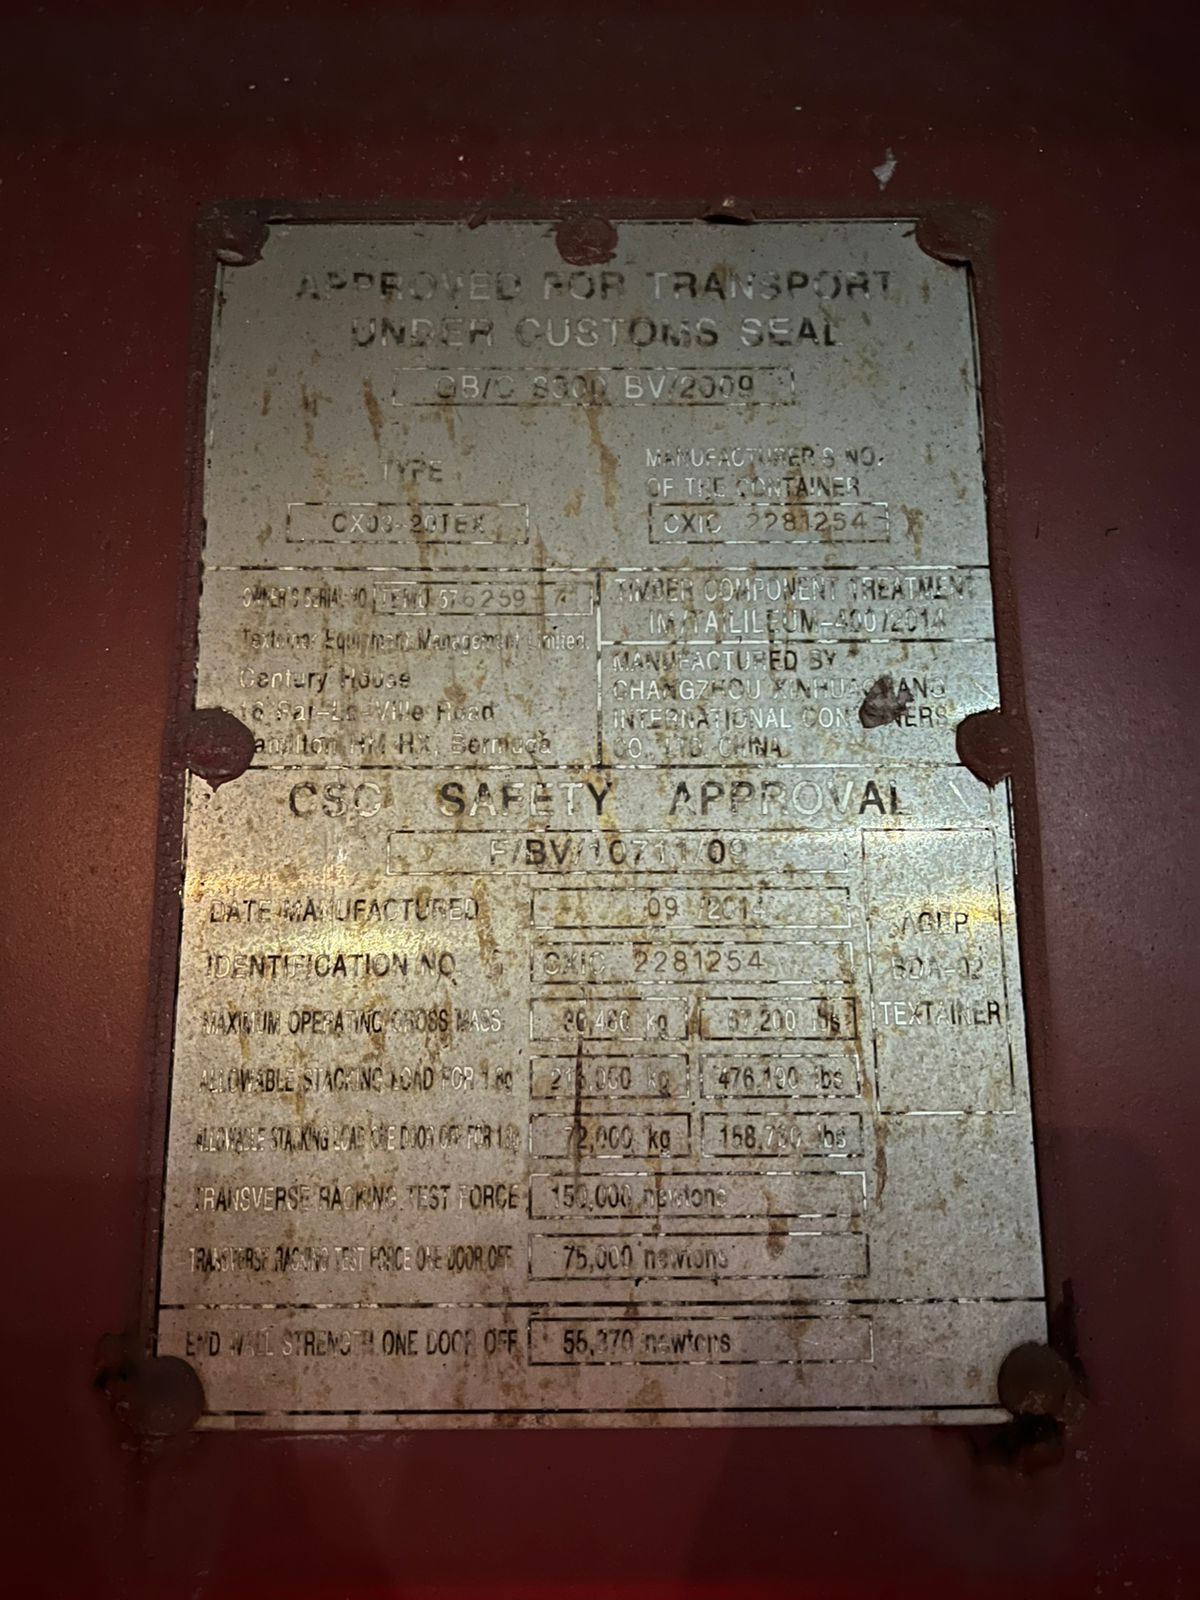 APPROVED FOR TRANSPORT
UNDER CUSTOMS SEAL
GB/C BV/2009
TYPE
CX03-20TEX
MANUFACTURER'S NO.
OF THE CONTAINER
CXIC 2281254
OWNER'S SERIAL NO. TEMU 576259
Textainer Equipment Management Limited.
Century House
16 Par-La-Ville Road
Hamilton HM HX, Bermuda
TIMBER COMPONENT TREATMENT
IM/TAILILEUM-400/2014
MANUFACTURED BY
CHANGZHOU XINHUACHANG
INTERNATIONAL CONTAINERS
CO., LTD. CHINA
CSC SAFETY APPROVAL
F/BV/10711/09
DATE MANUFACTURED 09 /2014
IDENTIFICATION NO. CXIC 2281254
MAXIMUM OPERATING GROSS MASS 30,480 kg 67,200 lbs
ALLOWABLE STACKING LOAD FOR 1.8g kg 476,190 lbs
ALLOWABLE STACKING LOAD ONE DOOR OFF FOR 1.8g 72,000 kg 158,730 lbs
TRANSVERSE RACKING TEST FORCE 150,000 newtons
TRANSVERSE RACKING TEST FORCE ONE DOOR OFF 75,000 newtons
END WALL STRENGTH ONE DOOR OFF newtons
ACEP
TEXTAINER